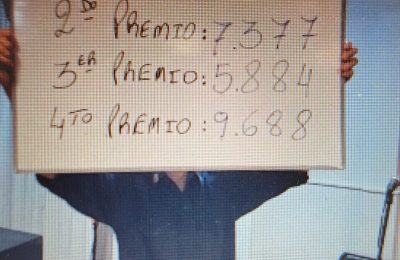 2do PREMIO: 7.377
3ER PREMIO: 5.884
4TO PREMIO: 9.688